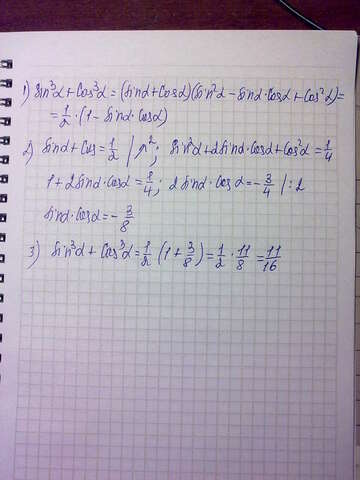 1) sin³α + cos³α = (sinα + cosα)(sin²α − sinα·cosα + cos²α) =
= 1/2 · (1 − sinα·cosα)
2) sinα + cos = 1/2 | n²; sin²α + 2sinα·cosα + cos²α = 1/4
1 + 2sinα·cosα = 1/4; 2 sinα·cosα = −3/4 | : 2
sinα·cosα = −3/8
3) sin³α + cos³α = 1/2 (1 + 3/8) = 1/2 · 11/8 = 11/16